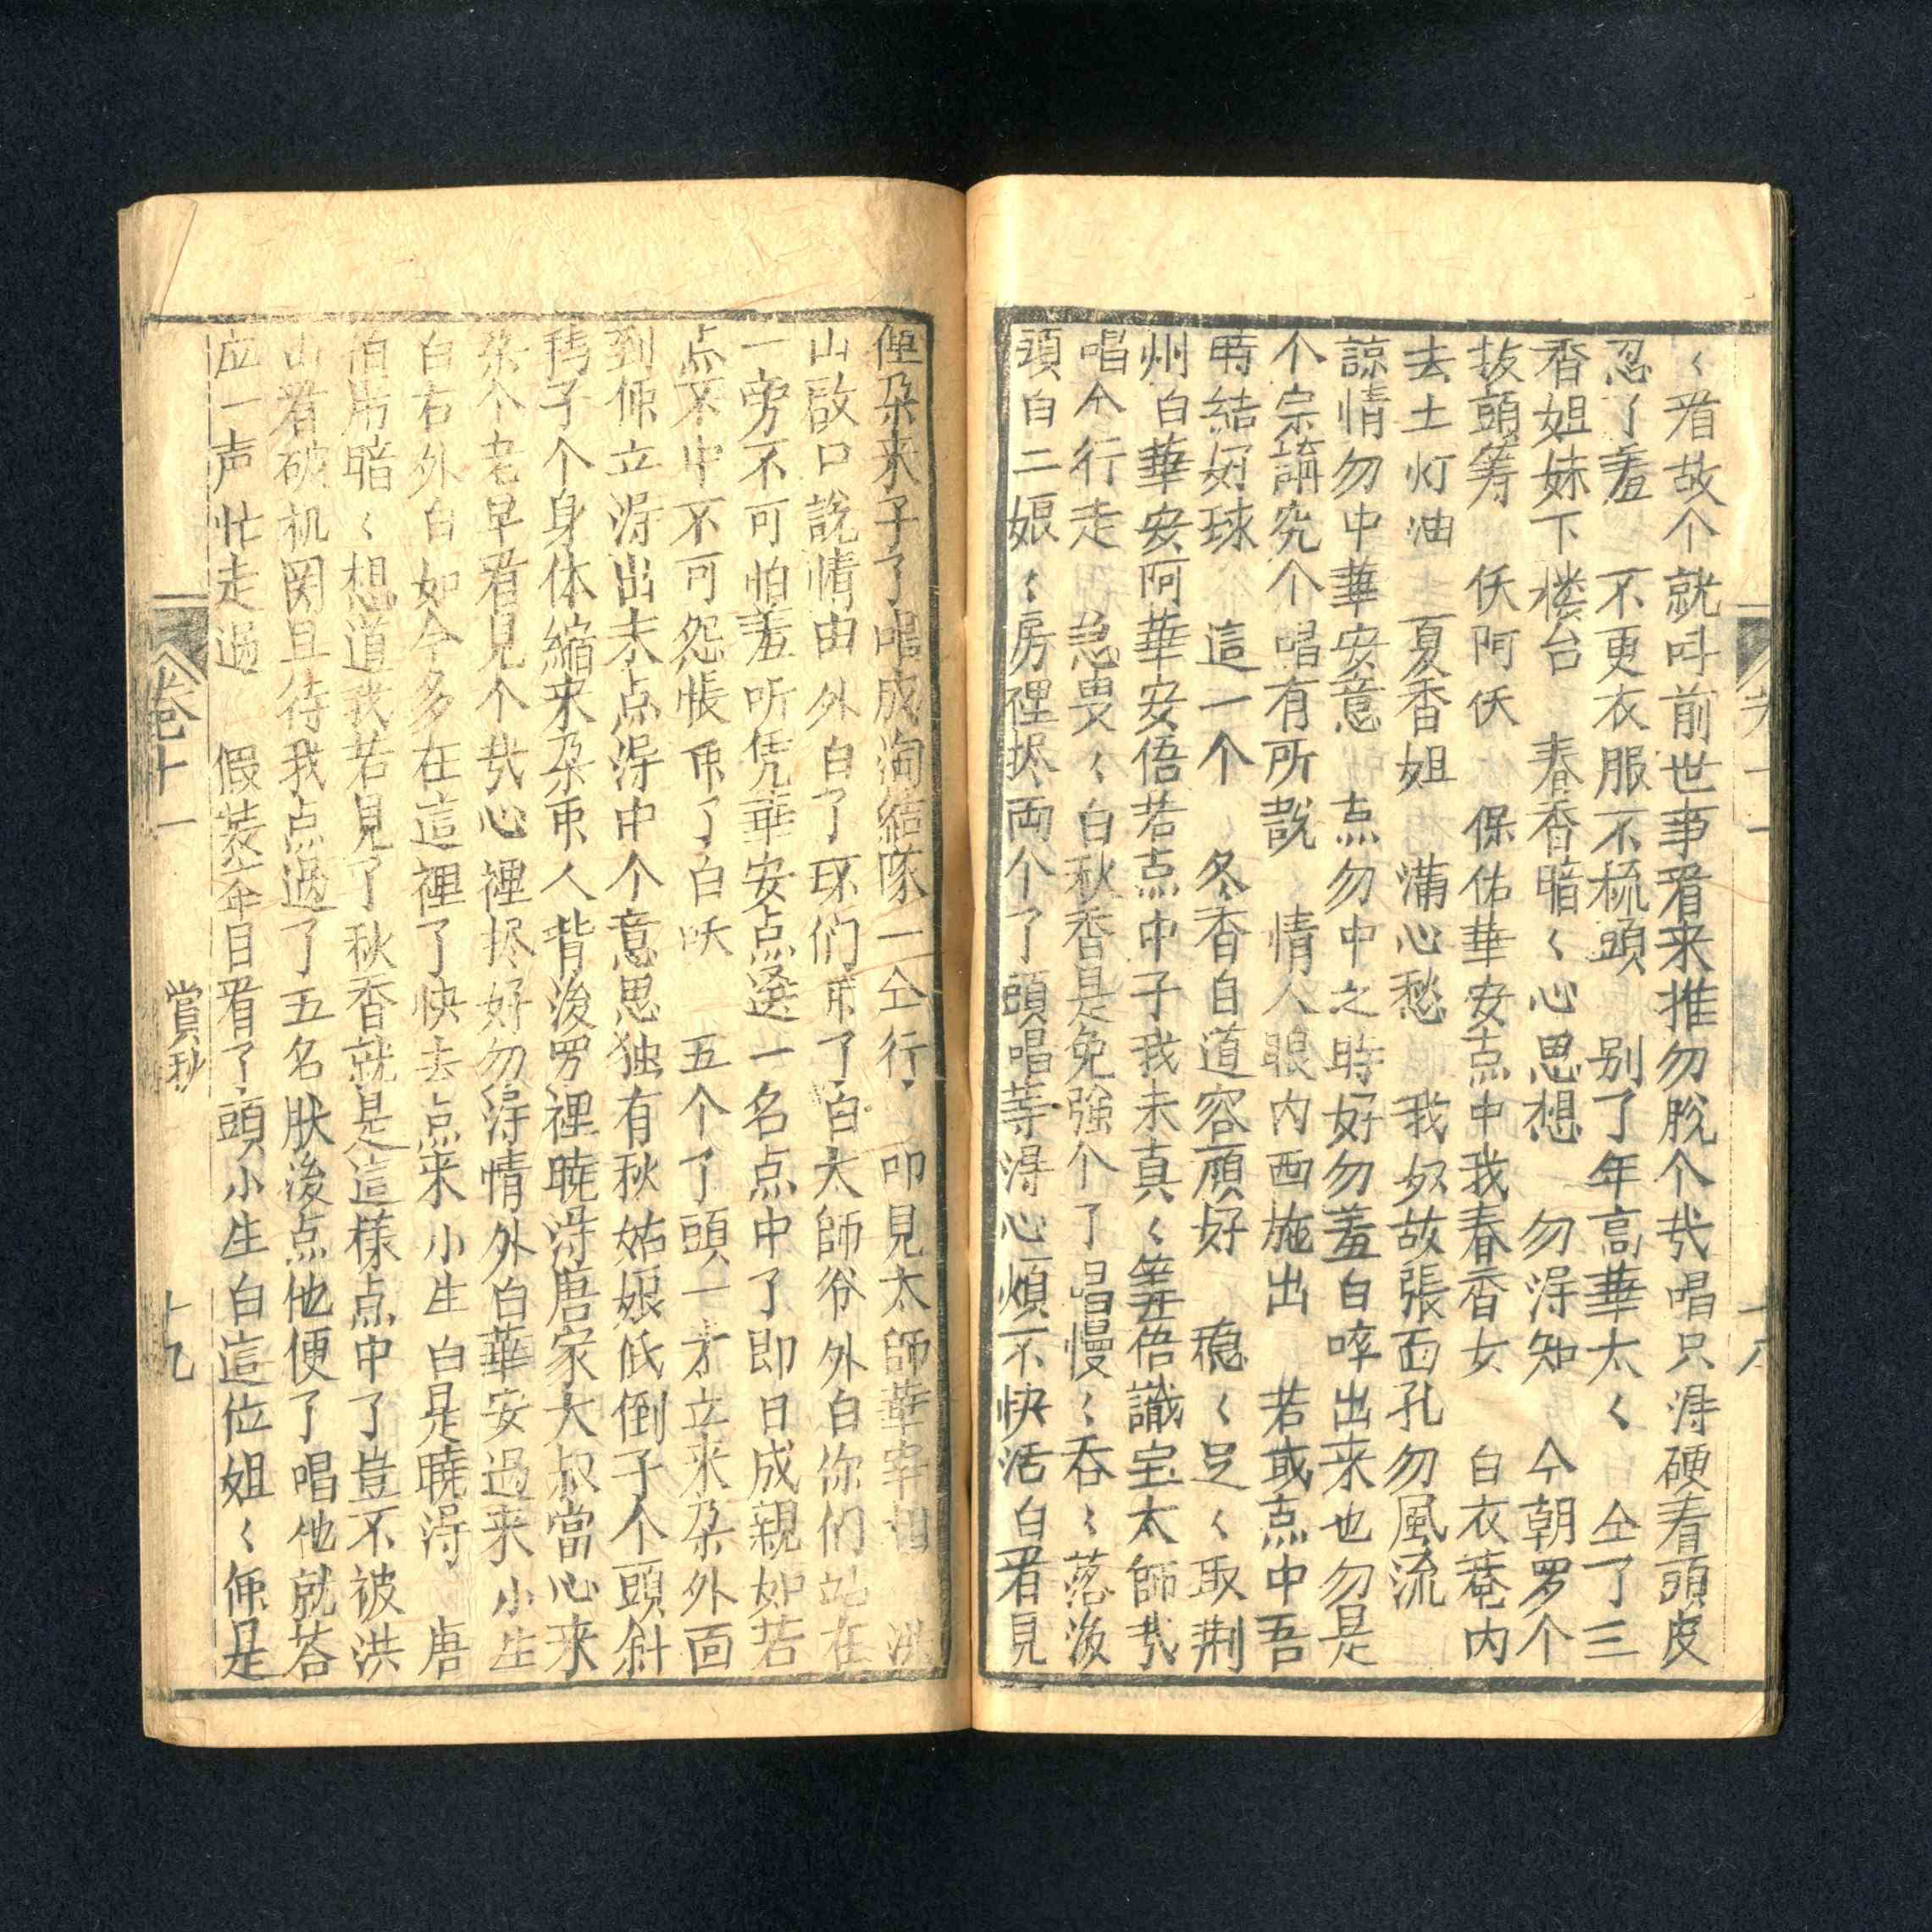 〻看故个就呌前世事看来推勿脱个㢤唱只淂硬着頭皮
忍了羞　不更衣服不梳頭　别了年高華太〻　仝了三
香姐妹下楼台　春香暗〻心思想　勿淂知　今朝罗个
抜頭筹　仸阿仸　保佑華安点中我春香女　白衣菴内
去土灯油　夏香姐　滿心愁　我奴故張面孔勿風流
諒情勿中華安意　点勿中之時好勿羞白啐出来也勿是
个宗講究个唱有所說　情人眼内西施出　若或点中吾
時結好球　這一个　冬香自道容顔好　穏〻足〻取荆
州白華安阿華安㑄若点中子我未真〻筭㑄識宝太師㢤
唱仝行走　急叟〻白秋香是免強个了唱慢〻吞〻落後
頭白二娘〻房裡拟両个了頭唱等淂心煩不快活白看見
俚朶来子了唱成淘結隊一仝行　叩見太師華宰相　洪
山啟口說情由　外白了环们　了白太師爷外白你们站在
一旁不可怕羞听凭華安点選一名点中了即日成親如若
点不中不可怨悵　了白　五个了頭一才立来朶外面
到㑚立淂出未点淂中个意思独有秋姑娘低倒子个頭斜
子个身体縮来朶　人背後罗裡暁淂唐家大叔當心来
朶个老早看見个㢤心裡拟好勿淂情外白華安過来小生
白右外白如今多在這裡了快去点来小生白是暁淂　唐
伯虎暗〻想道我若見了秋香就是這樣点中了豈不被洪
山看破机関且待我点過了五名肤後点他便了唱他就荅
应一声忙走過　假装年目看了頭小生白這位姐〻㑚是
卷十一
賞秋
十九